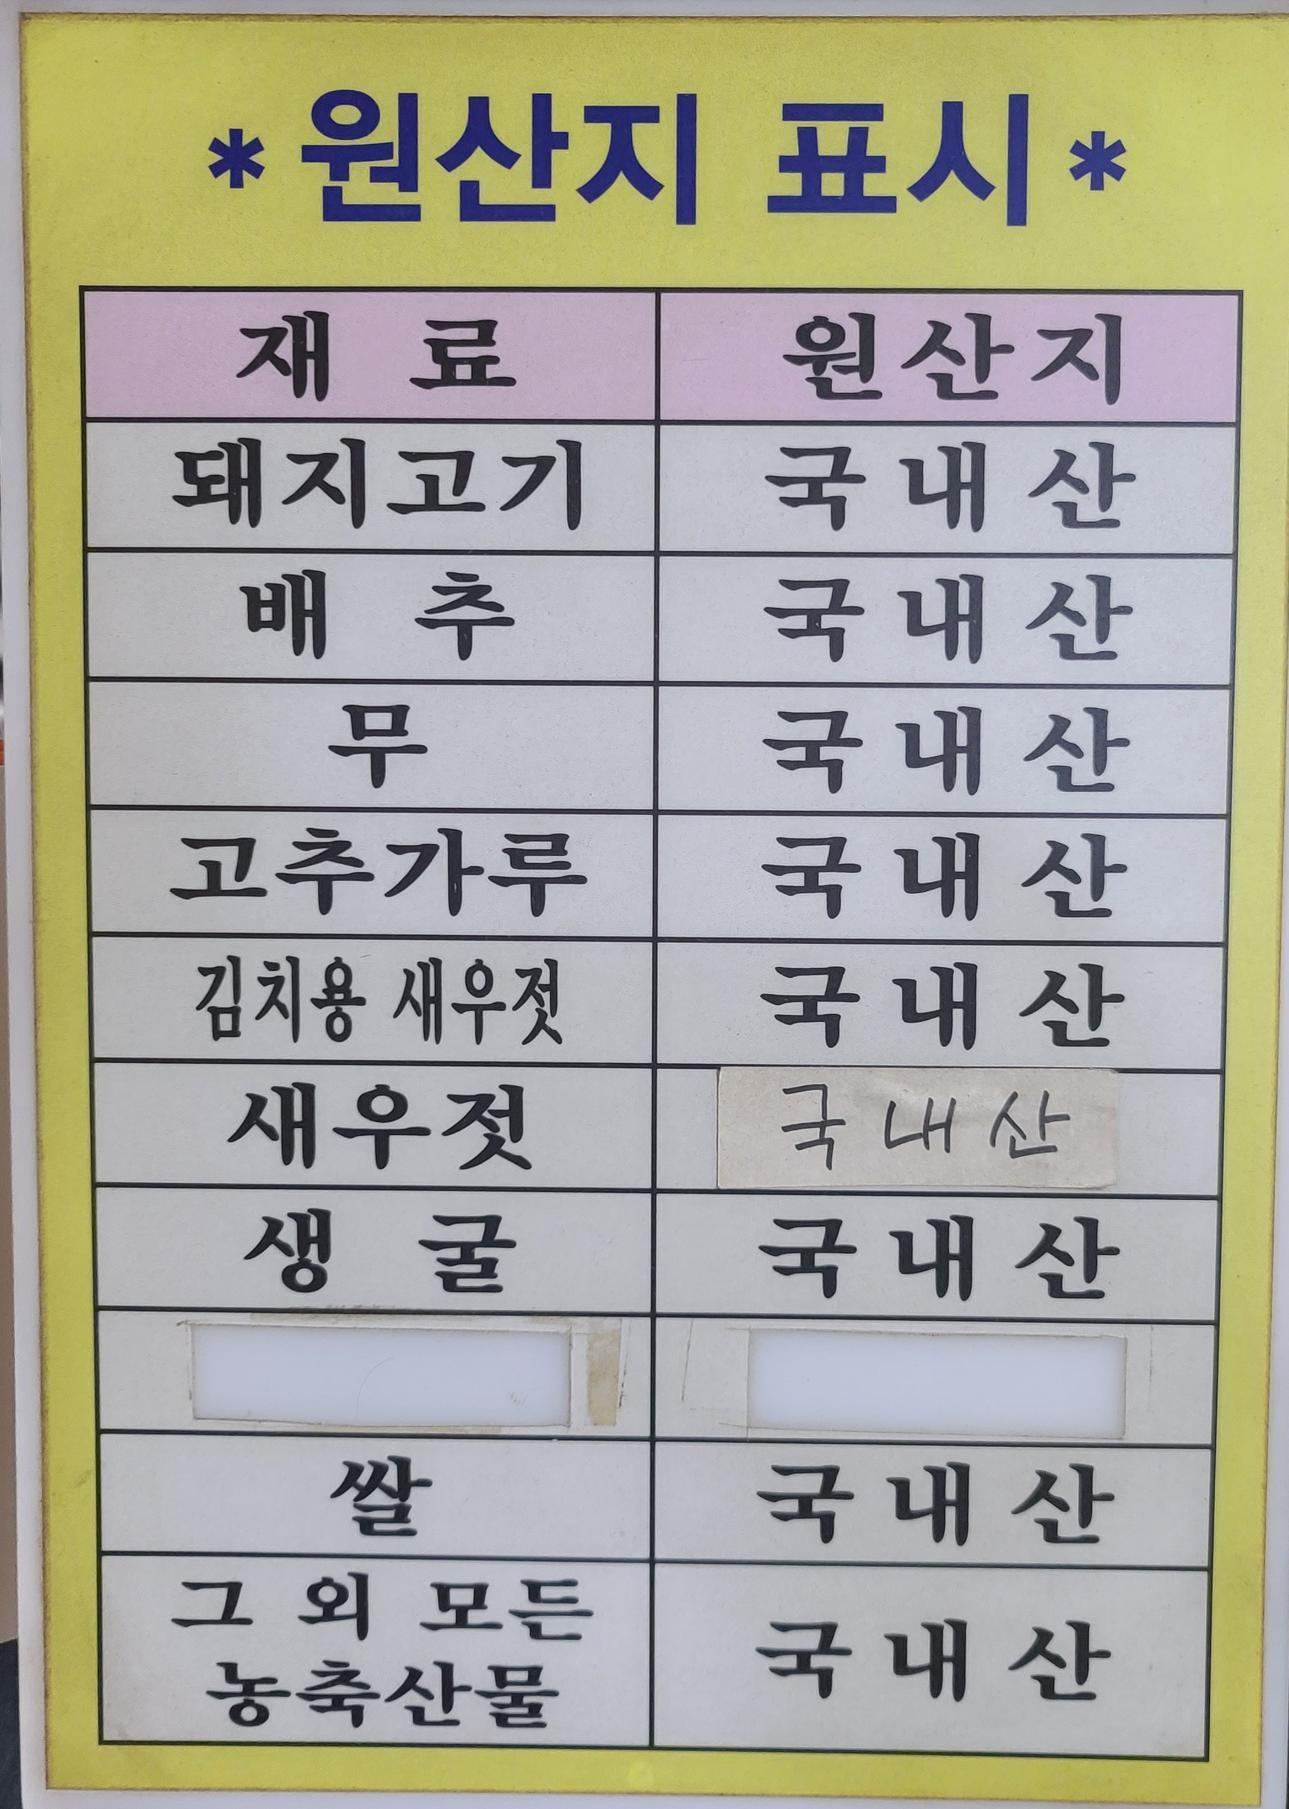 *원산지 표시*
재 료 원산지
돼지고기 국내산
배 추 국내산
무 국내산
고추가루 국내산
김치용 새우젓 국내산
새우젓 국내산
생 굴 국내산
쌀 국내산
그 외 모든
농축산물 국내산